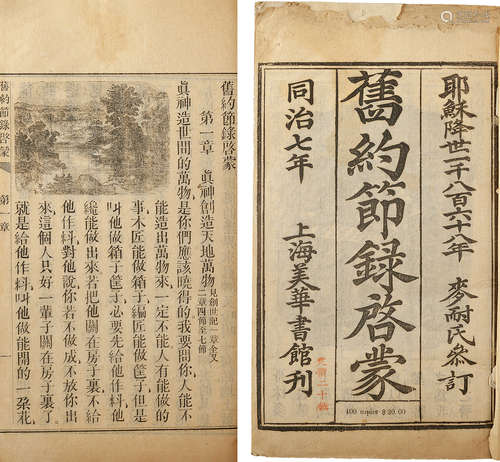 耶穌降世一千八百六十八年 麥耐民叅訂
舊約節錄啓蒙
同治七年 上海美華書館刊
400 copies $20.00
舊約節錄啓蒙
第一章 眞神創造天地萬物 見創世記一章全又二章四節至七節
眞神造世間的萬物是你們應該曉得的我要問你人能不
能造出萬物來一定不能人有能做的
事木匠能做箱子編匠能做筐子但是
叫他做箱子筐子必要先給他作料他
纔能做出來若把他關在房子裏不給
他作料對他說你若不做成不放你出
來這個人只好一輩子關在房子裏了
就是給他作料叫他做能開的一朶花
舊約節錄啓蒙 第一章